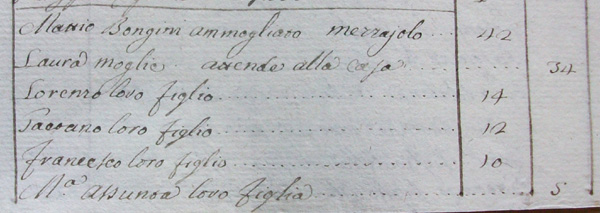 Mattio Bongini ammogliato mezzajolo 42
Laura moglie attende alla casa 34
Lorenzo loro figlio 14
loro figlio 12
Francesco loro figlio 10
M.a Assunta loro figlia 5